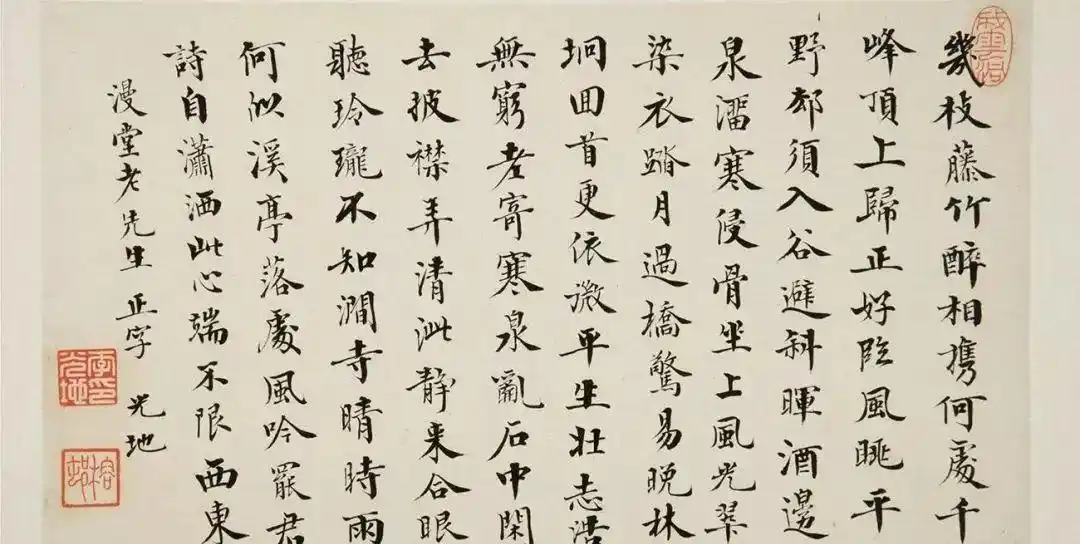 幾枝藤竹醉相携何處千
峰頂上歸正好臨風眺平
野郄須入谷避斜暉酒邊
泉溜寒侵骨坐上風光翠
染衣踏月過橋驚易晚林
坰回首更依微平生壯志浩
無窮老寄寒泉亂石中閑
去披襟弄清泚靜來合眼
聽玲瓏不知澗寺晴時雨
何似溪亭落處風吟罷君
詩自瀟洒此心端不限西東
漫堂老先生正字 光地
李印光地